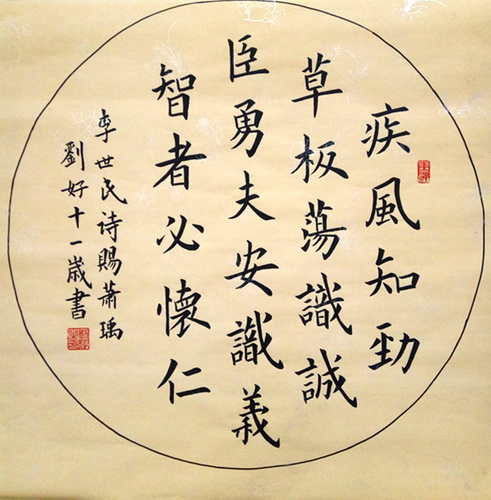 疾風知勁
草板蕩識誠
臣勇夫安識義
智者必懷仁
李世民诗賜蕭瑀
劉好十一歲書